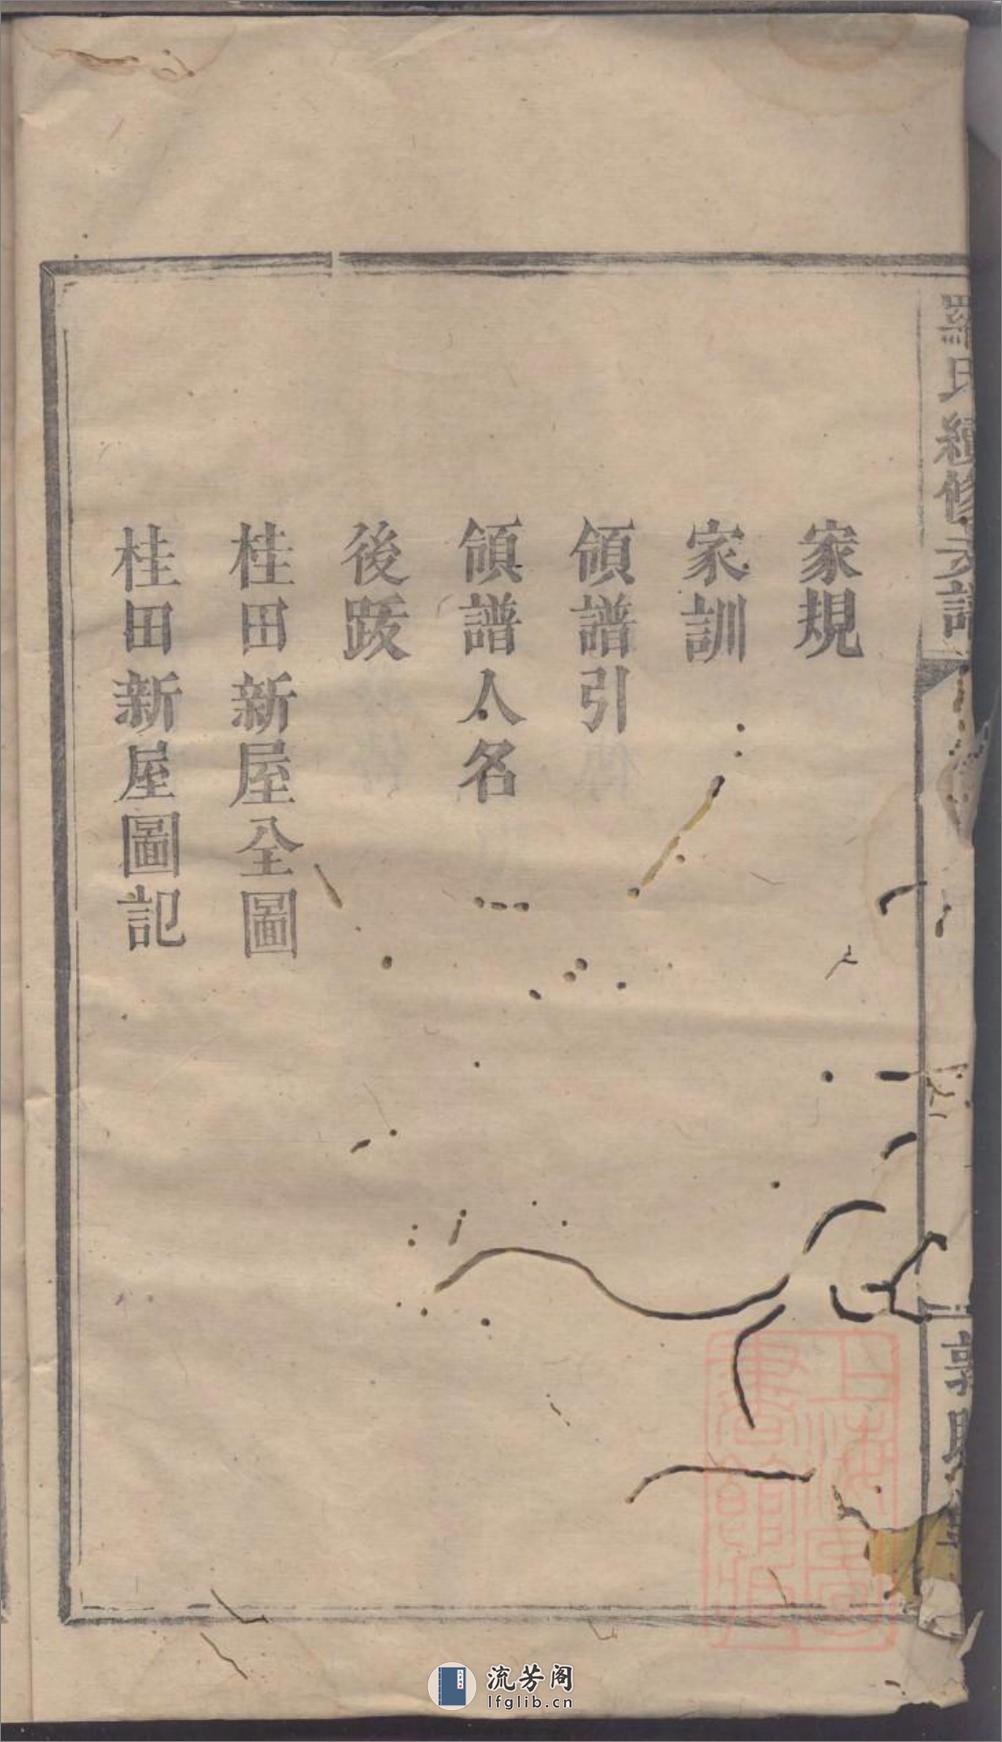 羅氏續修支譜
家規
家訓
領譜引
領譜人名
後跋
桂田新屋全圖
桂田新屋圖記
上海圖書館藏
流芳阁
lfglib.cn